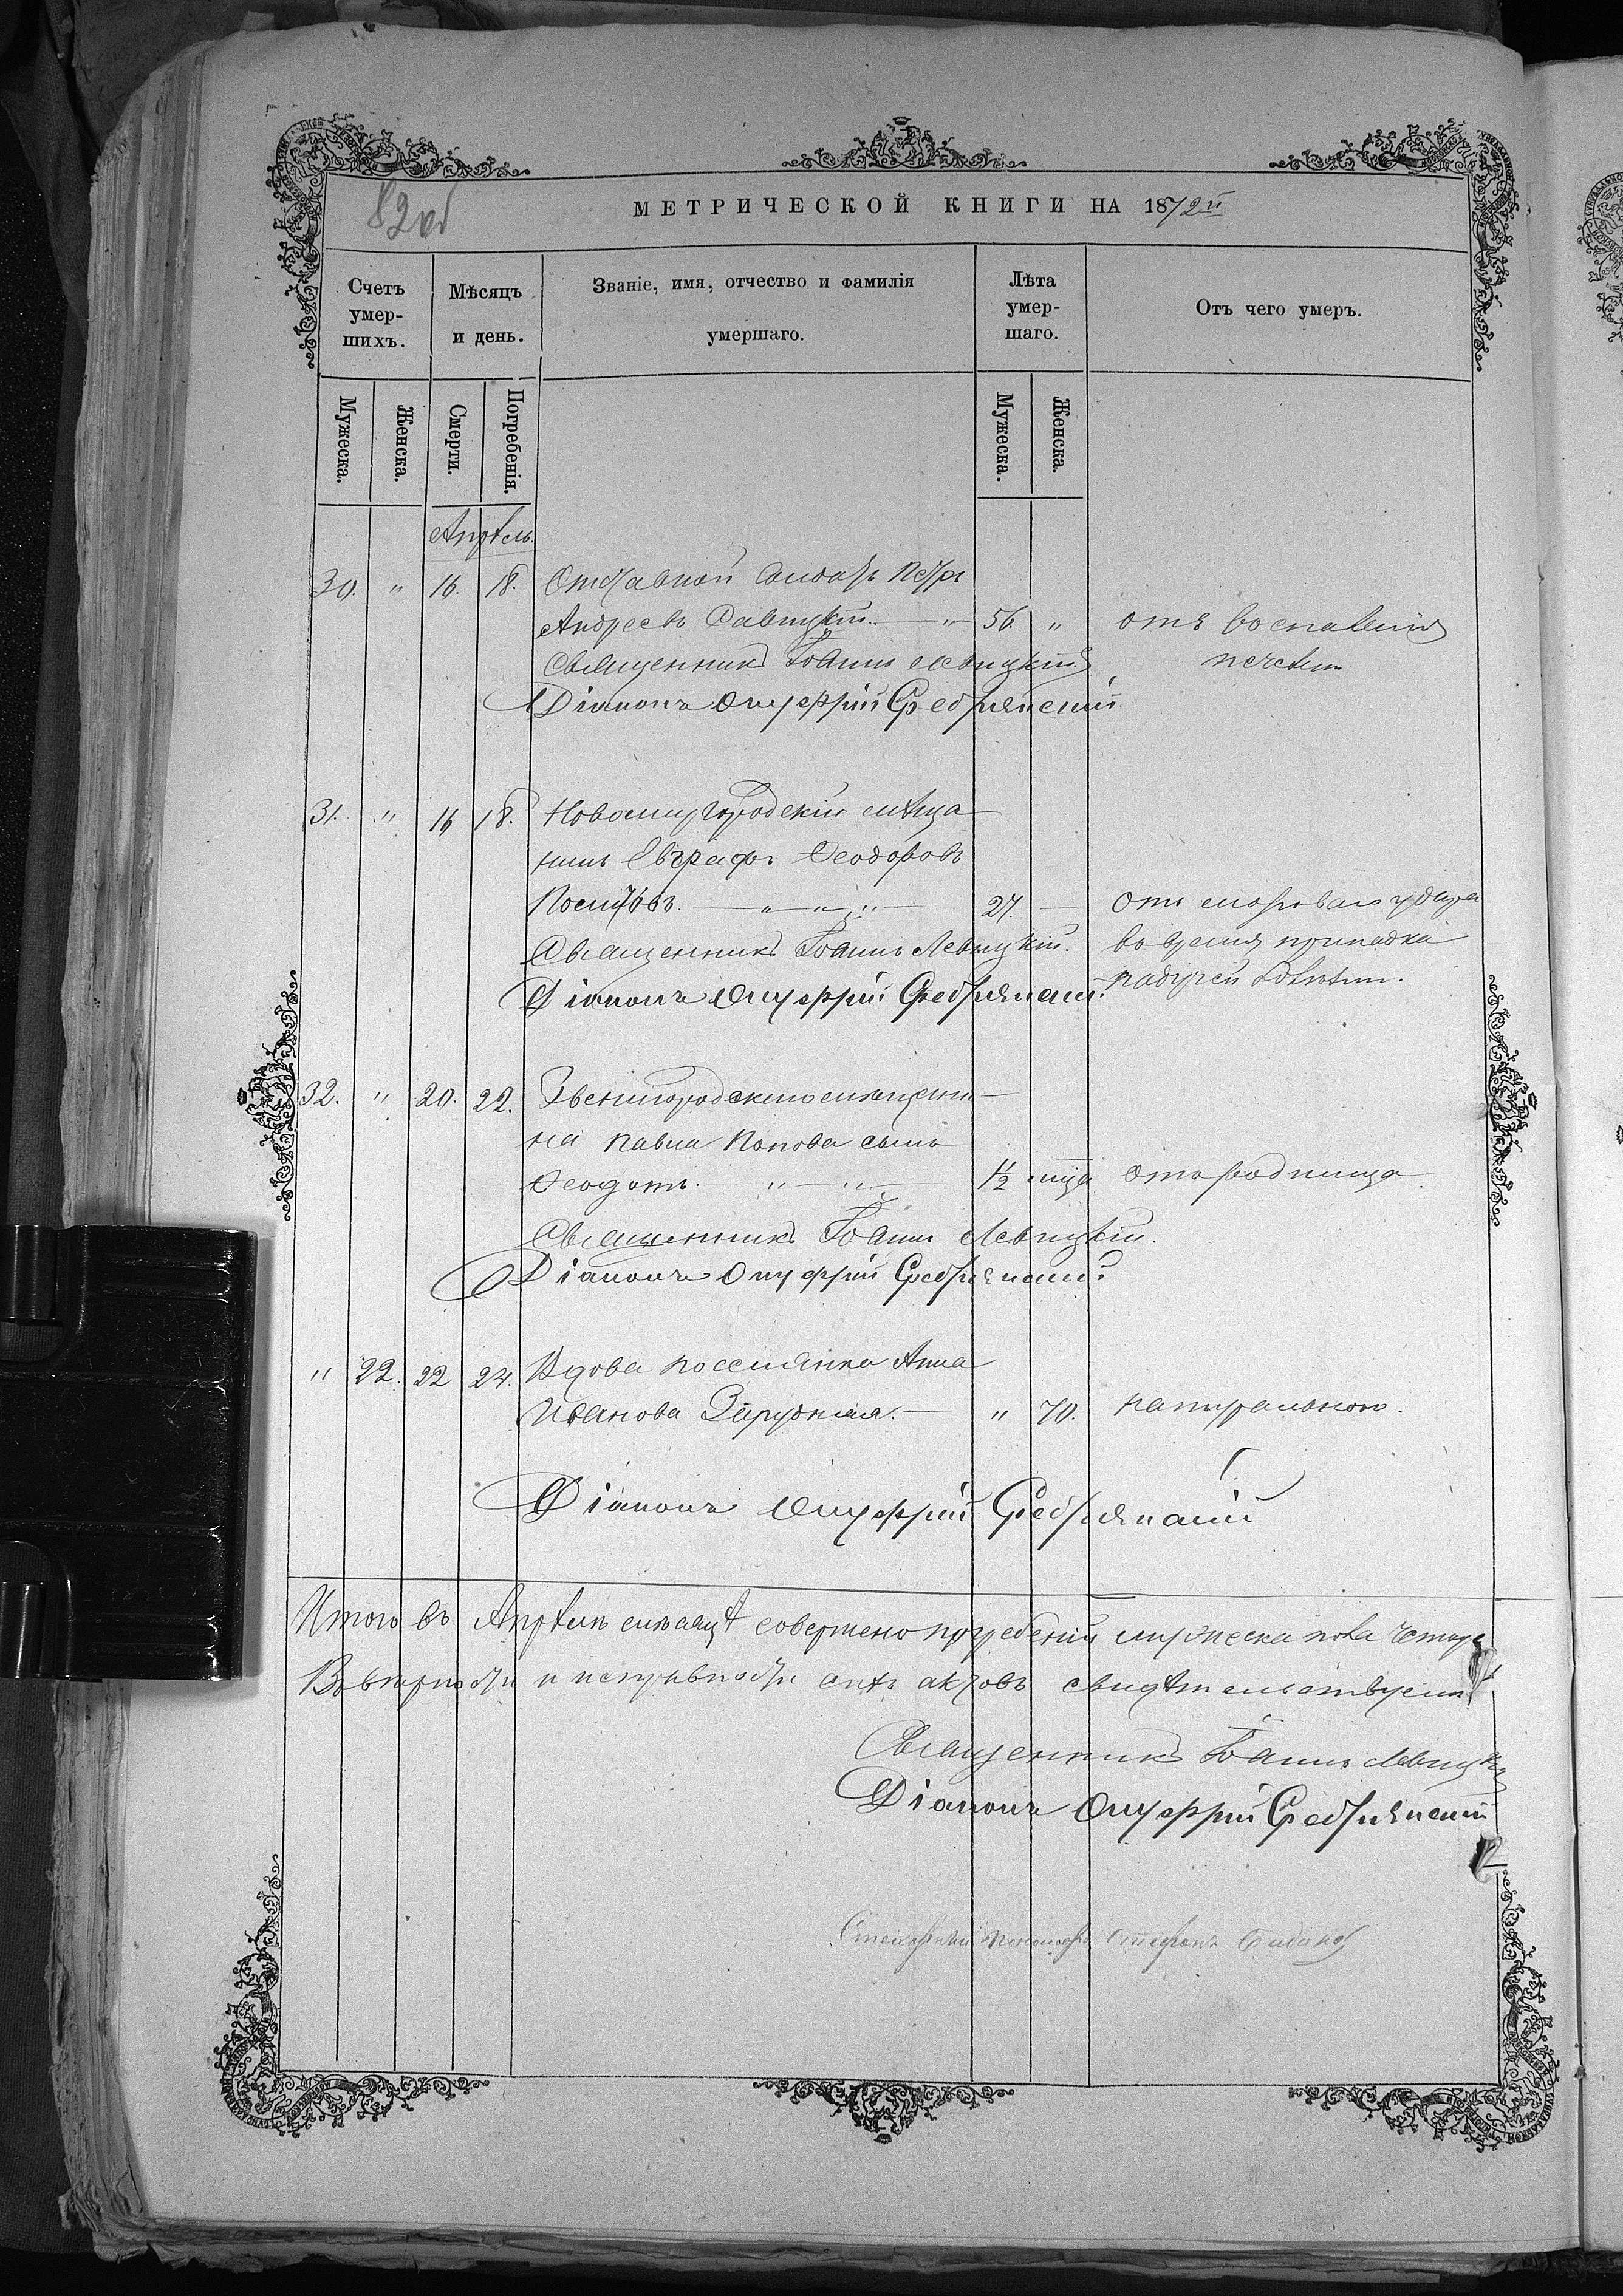 82об
МЕТРИЧЕСКОЙ КНИГИ НА 1872й
Счетъ умер-шихъ.
Мѣсяцъ и день.
Званіе, имя, отчество и фамилія умершаго.
Лѣта умер-шаго.
Отъ чего умеръ.
Мужеска.
Женска.
Смерти.
Погребенія.
Мужеска.
Женска.
Апрѣль.
30. " 16. 18. Отставной Солдатъ Петръ
Андреевъ Савицкій. — " — 56. " отъ воспаленія
Священникъ Іоаннъ Левицкій печени
Діаконъ Онуфрій Сребрянскій
31. " 16 18. Новомиргородскій мѣща-
нинъ Евграфъ Ѳеодоровъ
— " — " — " — 27. — отъ апоплексического удара
Священникъ Іоаннъ Левицкій. во время припадка
Діаконъ Онуфрій Сребрянскій. падучей болѣзни.
32. " 20. 22. Звенигородскаго мѣщани-
на Павла Попова сынъ
Ѳеодотъ. — " — " — 1/2 мца отъ родимца
Священникъ Іоаннъ Левицкій.
Діаконъ Онуфрій Сребрянскій
" 22. 22 24. Вдова поселянка Анна
Иванова Зарудная. — " 70. натуральною.
Діаконъ Онуфрій Сребрянскій
Итого въ Апрѣлѣ мѣсяцѣ совершено погребеній мужеска пола
Въ вѣрности и исправности сихъ актовъ свидѣтельствуемъ
Священникъ Іоаннъ Левицкій
Діаконъ Онуфрій Сребрянскій
Пономарь Стефанъ